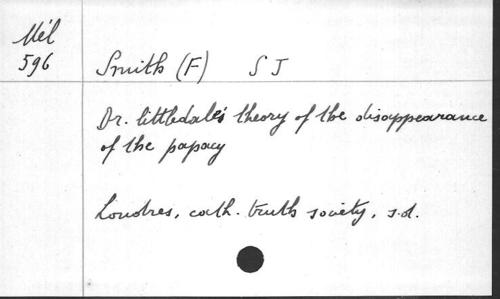 Mél
596
Smith (F) S J
Dr. littledale's theory of the disappearance
of the papacy
Londres, cath. truth society, s.d.